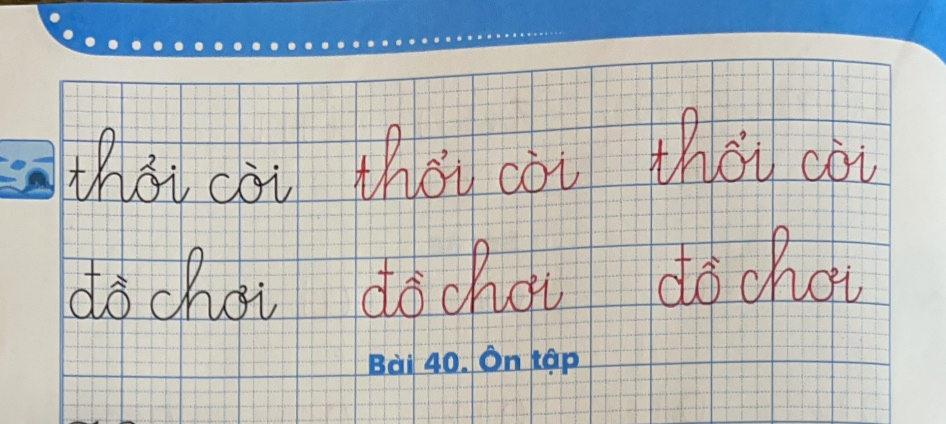 thổi còi thổi còi thổi còi
đồ chơi đồ chơi đồ chơi
Bài 40. Ôn tập